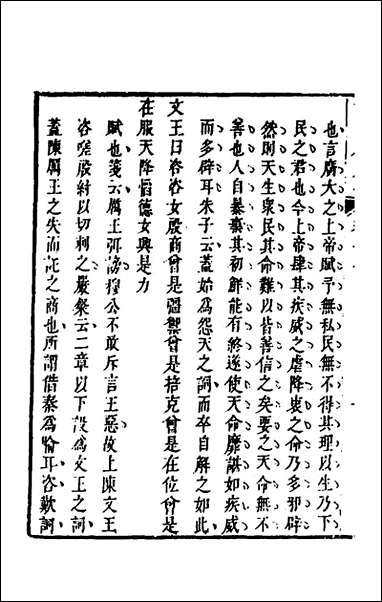 也言廣大之上帝賦予無私民無不得其理以生乃下
民之君也今上帝肆其疾威之虐降衷之命乃多邪辟
然則天生衆民其命難以皆善信之矣要之天命無不
善也人自暴棄其初鮮能有終遂使天命靡諶如疾威
而多辟耳朱子云蓋始爲怨天之詞而卒自解之如此
文王曰咨咨女殷商曾是彊禦曾是掊克曾是在位曾是
在服天降慆德女興是力
賦也箋云厲王弭謗穆公不敢斥言王惡故上陳文王
咨嗟殷紂以切刺之嚴粲云二章以下設爲文王之詞
蓋陳厲王之失而託之商也所謂借秦爲喻耳咨歎詞